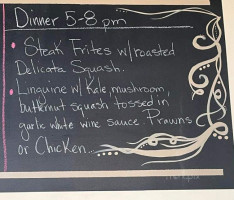 Dinner 5-8 pm
• Steak Frites w/roasted
Delicata Squash.
• Linguine w/ Kale, mushroom,
butternut squash tossed in
garlic white wine sauce. Prawns
or Chicken...